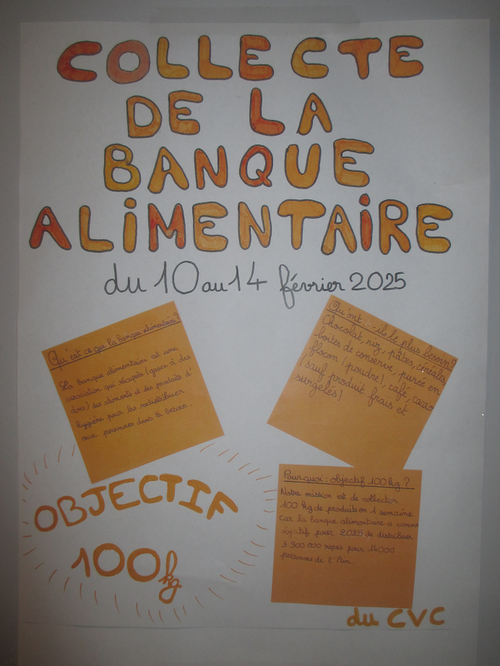 COLLECTE
DE LA
BANQUE
ALIMENTAIRE
du 10 au 14 février 2025
Qu'est ce que la banque alimentaire?
La banque alimentaire est une
association qui récupère (grace à des
dons) des aliments et des produits d'
hygiène pour les redistribuer
aux personnes dans le besoin.
Qu'ont-ils le plus besoin?
Chocolat, riz, pâtes,
boites de conserve, purée en
flocon (poudre), café, cacao
(sauf produit frais et
surgelés)
OBJECTIF
100kg
Pourquoi: objectif 100 kg?
Notre mission est de collecter
100 kg de production 1 semaine
car la banque alimentaire a comme
objectif pour 2025 de distribuer
1 500 000 repas pour 14000
personnes de l'Ain.
du CVC